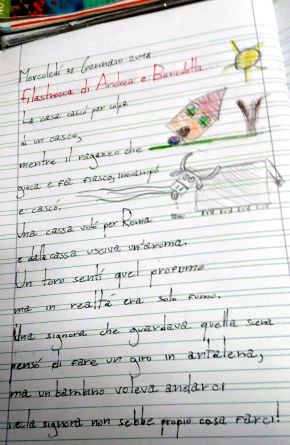 Mercoledì 31 Gennaio 2018
filastrocca di Andrea e Benedetta.
La casa cascò per colpa
di un casco,
mentre il ragazzo che
gioca e fà fiasco, inciampò
e cascò.
Una cassa volò per Roma
e dalla cassa usciva un'aroma.
Un toro sentì quel profumo
ma in realtà era solo fumo.
Una signora che guardava quella scena
pensò di fare un giro in artalena,
ma un bambino voleva andarci
e la signora non sebbe propio cosa farci!